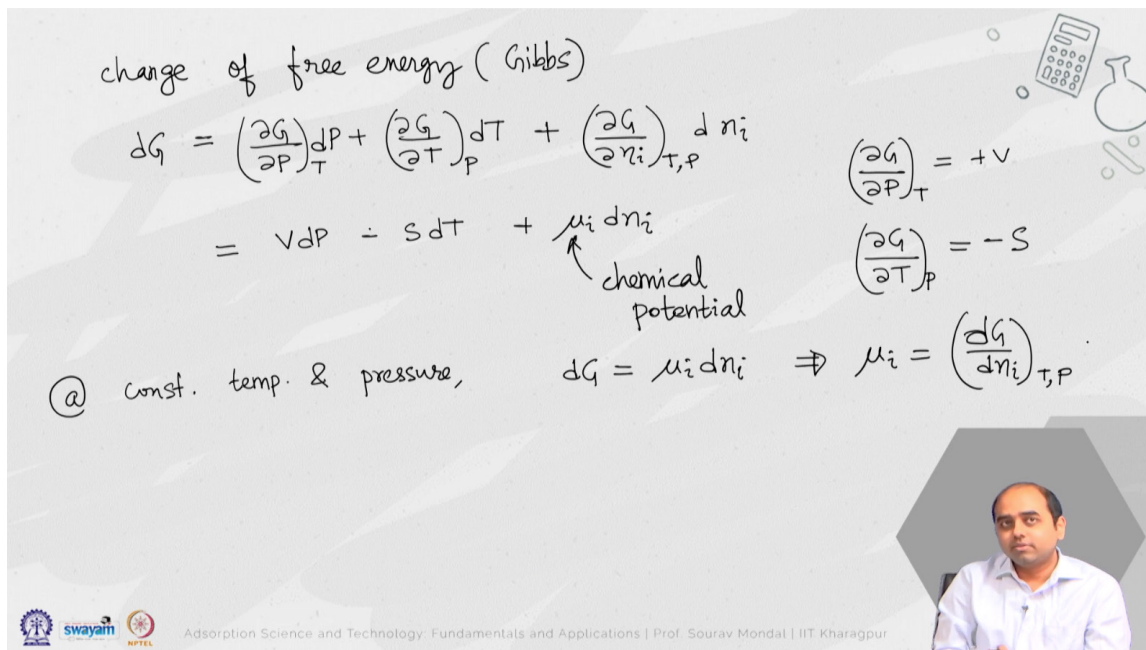 change of free energy ( Gibbs)
dG = (∂G/∂P)_T dP + (∂G/∂T)_P dT + (∂G/∂ni)_T,P d ni
(∂G/∂P)_T = +V
= VdP - SdT + μi dni
(∂G/∂T)_P = -S
chemical
potential
@ const. temp. & pressure, dG = μi dni ⇒ μi = (dG/dni)_T,P .
swayam NPTEL Adsorption Science and Technology: Fundamentals and Applications | Prof. Sourav Mondal | IIT Kharagpur